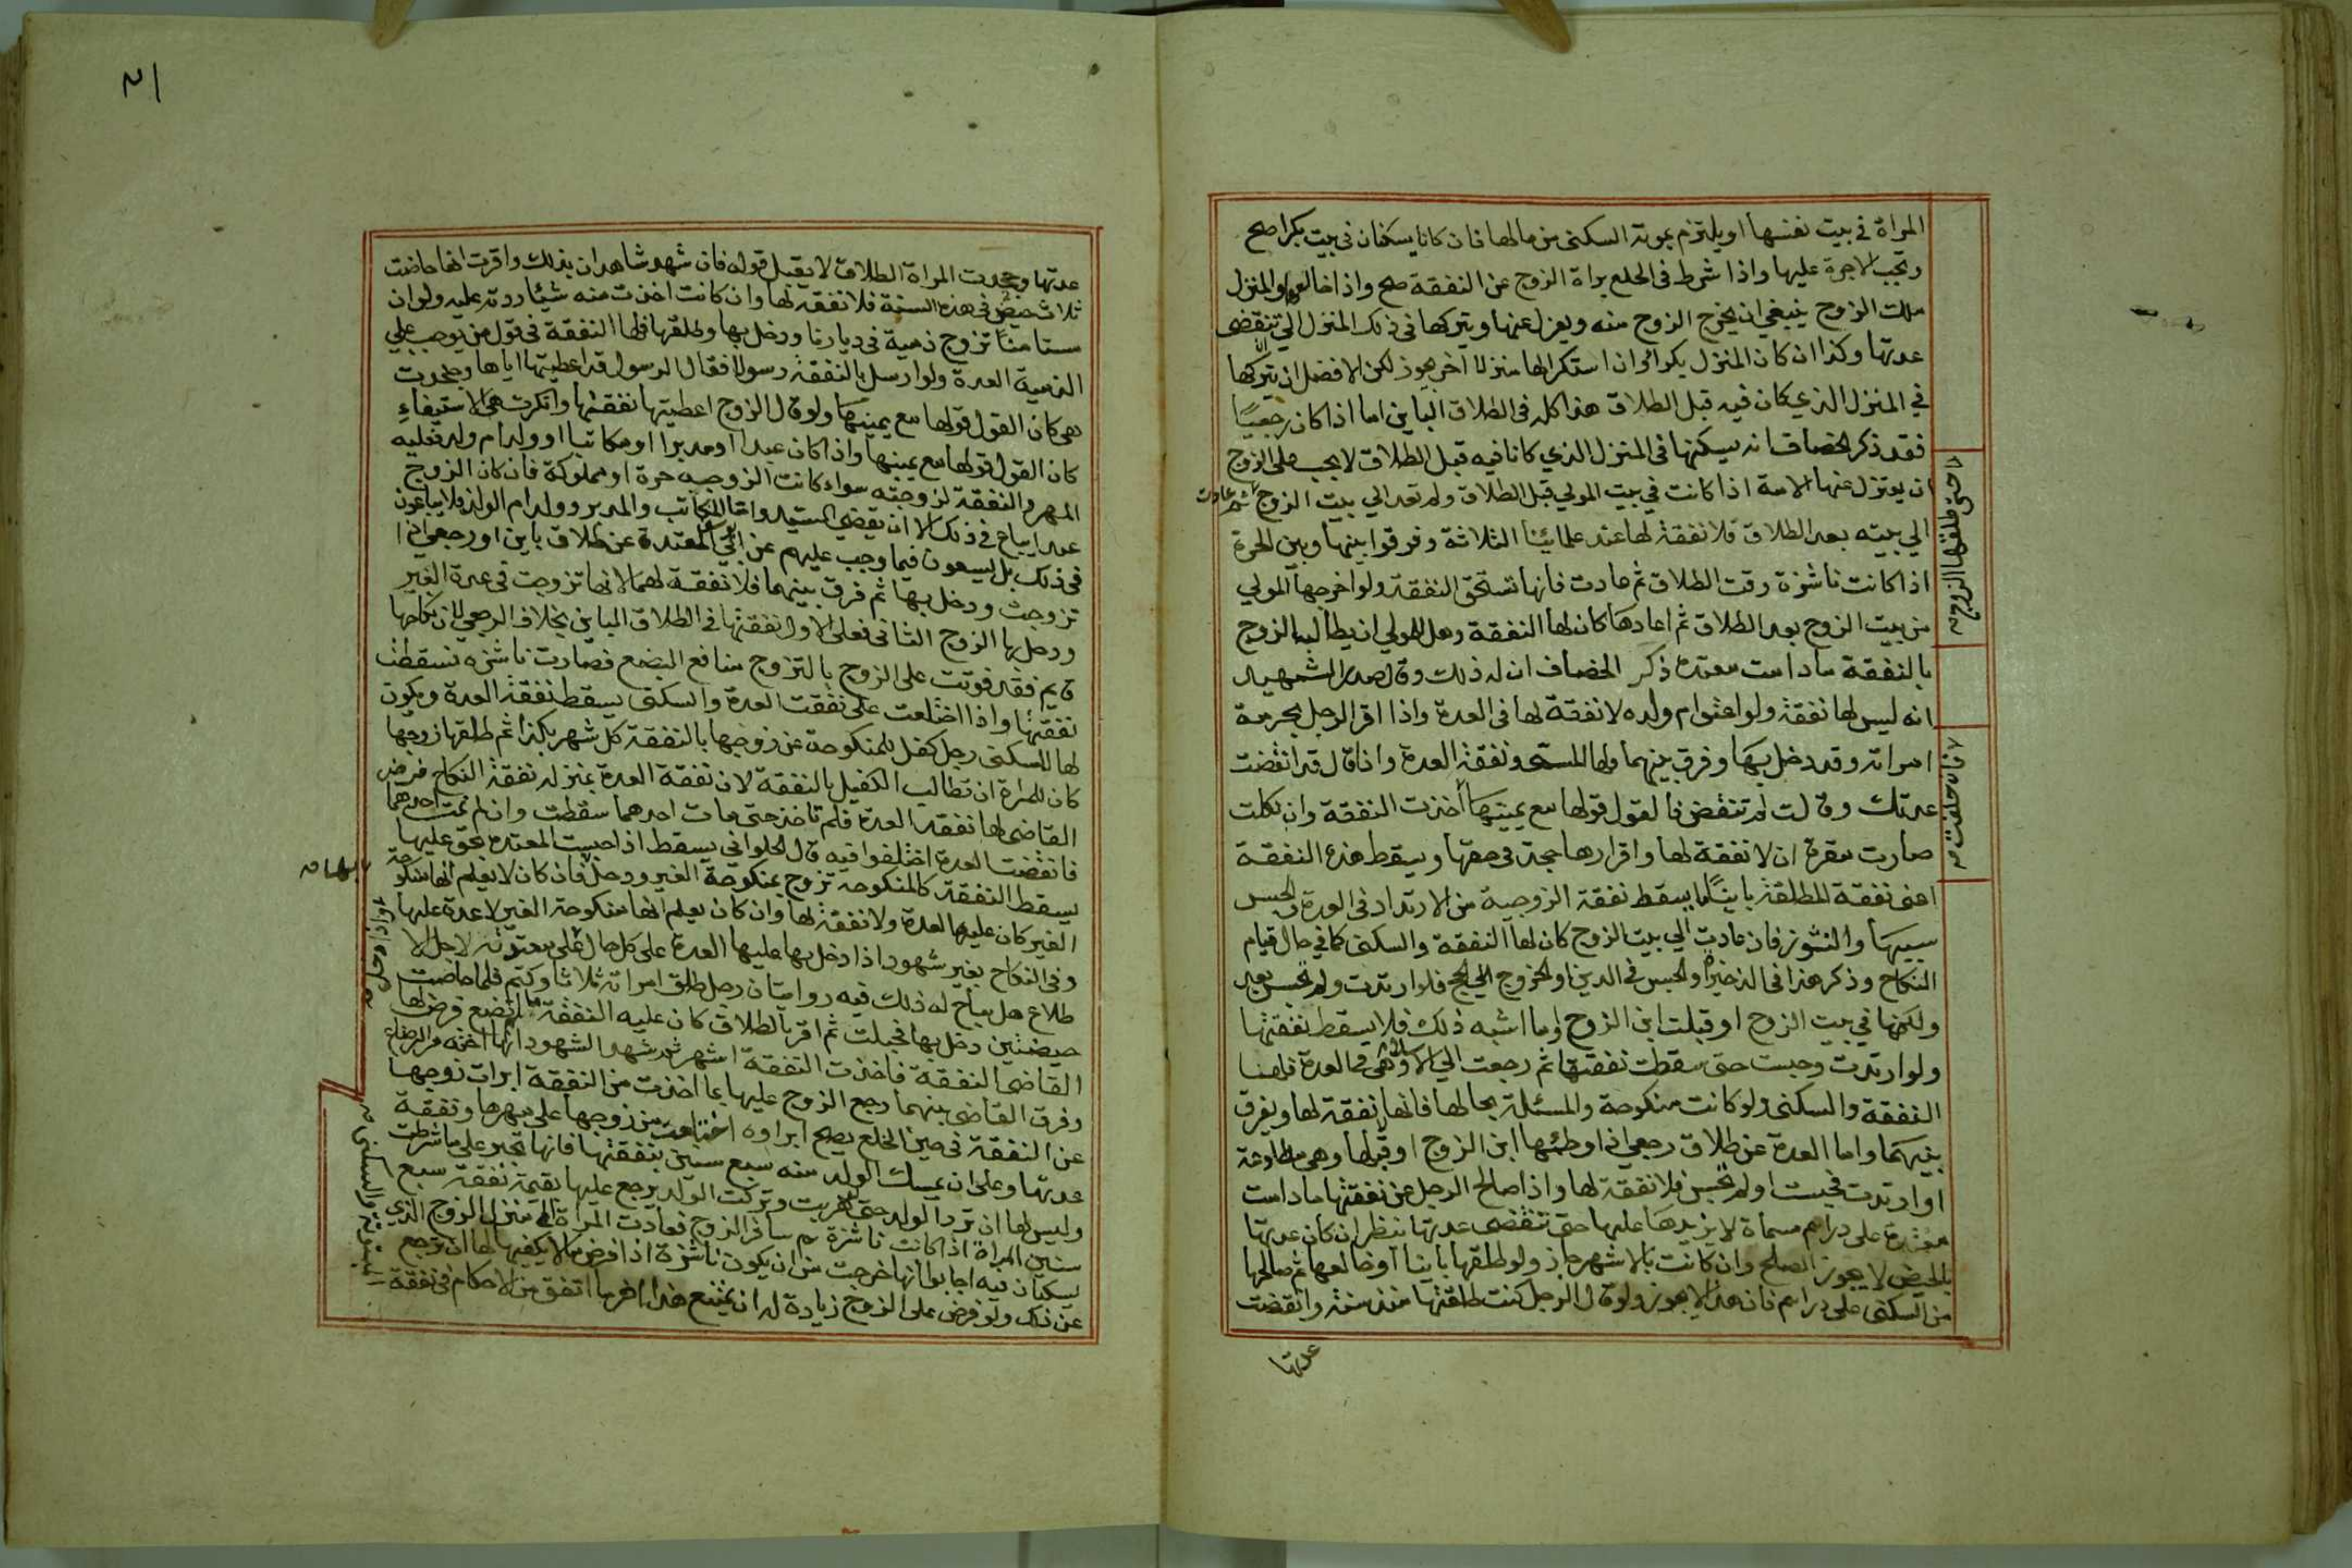 المراة في بيت نفسها او يلتزم بمونة السكنى من مالها فان كانا يسكنان في بيت بكرا صح
وتجب الاجرة عليها واذا شرط في الخلع براة الزوج عن النفقة صح واذا خالعها والمنزل
ملك الزوج ينبغي ان يخرج الزوج منه ويعزل عنها ويتركها في ذلك المنزل الي تنقضى
عدتها وكذا ان كان المنزل بكرا ان استكرا لها منزلا اخر يجوز لكن الافضل ان يتركها
في المنزل الذي كان فيه قبل الطلاق هذا كله في الطلاق الباين اما اذا كان رجعيا
فقد ذكر الخصاف انه يسكنها في المنزل الذي كانا فيه قبل الطلاق لا يجب على الزوج
ان يعتزل عنها الامة اذا كانت في بيت المولي قبل الطلاق ولم تعد الي بيت الزوج ثم عادت
الي بيته بعد الطلاق فلا نفقة لها عند علمائنا الثلاثة وفرقوا بينها وبين الحرة
اذا كانت ناشزة وقت الطلاق ثم عادت فانها تستحق النفقة ولو اخرجها المولي
من بيت الزوج بعد الطلاق ثم اعادها كان لها النفقة وهل للمولي ان يطالب الزوج
بالنفقة ما دامت معتدة ذكر الخصاف ان له ذلك وقال صدر الشهيد
انه ليس لها نفقة ولو اعتق ام ولده لا نفقة لها في العدة واذا اقر الرجل بحرمة
امراته وقد دخل بها وفرق بينهما ولها المسمى ونفقة العدة واذا قال قد انقضت
عدتك وقالت لم تنقض فالقول قولها مع يمينها اخذت النفقة وان نكلت
صارت مقرة ان لا نفقة لها واقرارها حجة في حقها ويسقط هذه النفقة
اعنى نفقة المطلقة باينا بما يسقط نفقة الزوجية من الارتداد في العدة والحبس
سببها والنشوز فان عادت الي بيت الزوج كان لها النفقة والسكنى كما في حال قيام
النكاح وذكر هذا في الذخيرة والحبس في الدين او الخروج الي الحج فلو ارتدت ولم تحبس بعد
ولكنها في بيت الزوج او قبلت ابن الزوج وما اشبه ذلك فلا يسقط نفقتها
ولو ارتدت وحبست حتى سقطت نفقتها ثم رجعت الي الاسلام وهى في العدة فلها
النفقة والسكنى ولو كانت منكوحة والمسئلة بحالها فانها لا نفقة لها ويفرق
بينهما واما العدة عن طلاق رجعي اذا وطئها ابن الزوج او قبلها وهى مطاوعة
او ارتدت فحبست او لم تحبس فلا نفقة لها واذا صالح الرجل عن نفقتها ما دامت
معتدة على دراهم مسماة لا يزيدها عليها حتى تنقضى عدتها ننظر ان كان عدتها
بالحيض لا يجوز الصلح وان كانت بالاشهر جاز ولو طلقها باينا او خالعها ثم صالحها
من السكنى على دراهم فان هذا لا يجوز ولو قال الرجل كنت طلقتها منذ سنة وانقضت
حتى طلقها الزوج
فان حلفت
عدتها
٢١
عدتها وجحدت المراة الطلاق لا يقبل قوله فان شهد شاهدان بذلك واقرت انها حاضت
ثلاث حيض في هذه السنة فلا نفقة لها وان كانت اخذت منه شيئا ردته عليه ولو ان
مستامنا تزوج ذمية في ديارنا ودخل بها وطلقها فلها النفقة في قول من يوجب علي
الذمية العدة ولو ارسل بالنفقة رسولا فقال الرسول قد اعطيتها اياها وجحدت
هى كان القول قولها مع يمينها ولو قال الزوج اعطيتها نفقتها وانكرت هى الاستيفاء
كان القول قولها مع يمينها واذا كان عبدا او مدبرا او مكاتبا او ولد ام ولد فعليه
المهر والنفقة لزوجته سواء كانت الزوجية حرة او مملوكة فان كان الزوج
عبدا يباع في ذلك الا ان يقضى السيد واما المكاتب والمدبر وولد ام الولد فلا يباعون
في ذلك بل يسعون فيما وجب عليهم عن ابي يوسف المعتدة عن طلاق باين او رجعي اذا
تزوجت ودخل بها ثم فرق بينهما فلا نفقة لهما لانها تزوجت في عدة الغير
ودخل بها الزوج الثانى فعلى الاول نفقتها في الطلاق الباين بخلاف الرجعي لان نكاحها
قايم فقد فوتت على الزوج بالتزوج منافع البضع فصارت ناشزه فسقطت
نفقتها واذا اختلعت على نفقت العدة والسكنى يسقط نفقة العدة ويكون
لها السكنى رجل كفل للمنكوحة عن زوجها بالنفقة كل شهر بكذا ثم طلقها زوجها
كان للمراة ان تطالب الكفيل بالنفقة لان نفقة العدة بمنزلة نفقة النكاح فرض
القاضى لها نفقة العدة فلم تاخذ حتى مات احدهما سقطت وان لم يمت احدهما
فانقضت العدة اختلفوا فيه قال الحلوانى يسقط اذا حبست المعتدة بحق عليها
يسقط النفقة كالمنكوحة تزوج بمنكوحة الغير ودخل فان كان لا يعلم انها منكوحة
الغير كان عليها العدة ولا نفقة لها وان كان يعلم انها منكوحة الغير لا عدة عليها
وفى النكاح بغير شهود اذا دخل بها عليها العدة على كل حال لاجل الا
طلاع هل يباح له ذلك فيه روايتان رجل طلق امراته ثلاثا وكتم فلما حاضت
حيضتين دخل بها فحبلت ثم اقر بالطلاق كان عليه النفقة ما لم تضع فرض لها
القاضى النفقة فاخذت النفقة اشهر ثم شهد الشهود انها اخته من الرضاع
وفرق القاضى بينهما رجع الزوج عليها بما اخذت من النفقة ابرات زوجها
عن النفقة في حين الخلع يصح ابراوه اختلعت من زوجها على مهرها ونفقة
عدتها وعلى ان يمسك الولد منه سبع سنين بنفقتها فانها تجبر على ما شرطت
وليس لها ان ترد الولد حتى لو هربت وتركت الولد يرجع عليها بقيمة نفقة سبع
سنين المراة اذا كانت ناشزة ثم سافر الزوج فعادت المراة الى منزل الزوج الذي
يسكنان فيه اجابوا انها خرجت من ان يكون ناشزة اذا فرض ما لا يكفيها لها ان ترجع
عن ذلك ولو فرض على الزوج زيادة له ان يمتنع هذا اخر ما اتفق من الاحكام في نفقة
بها